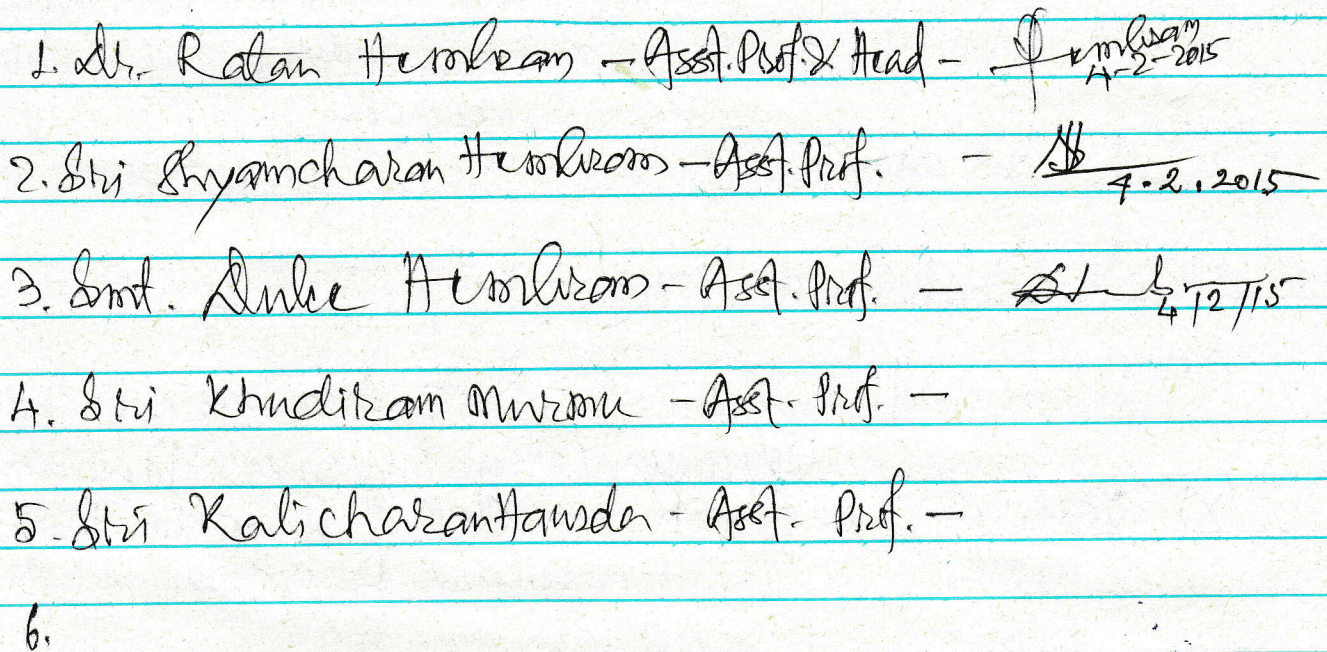 1. Dr. Ratan Hembram - Asst. Prof. & Head - Hembram
4-2-2015
2. Sri Shyamcharan Hembrom - Asst. Prof. -
4.2.2015
3. Smt. Dulce Hembrom - Asst. Prof. -
4/2/15
4. Sri Khudiram Murmu - Asst. Prof. -
5. Sri Kalicharan Hansda - Asst. Prof. -
6.